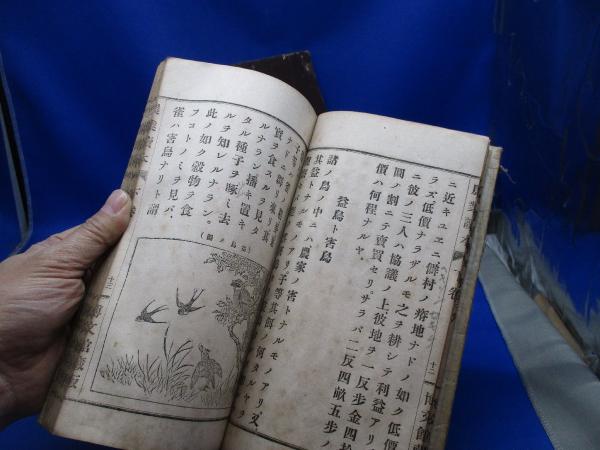 ニ近キユヱニ僻村ノ瘠地ナドノ如ク低價
ラズ低價ナラザルモ之ヲ耕シテ利益アリ
彼ノ三人ハ協議ノ上彼地ヲ一反歩金四拾
圓ノ割ニテ賣買セリ、サラバ二反四畝五歩ノ
價ハ何程ナルヤ、
益鳥ト害鳥
諸ノ鳥ノ中ニハ農家ノ害トナルモノアリ、又
其益トナルモノアリ、子等其餌ノ何タルヤヲ
實ヲ食スルヲ見タ
ルナラン、播キ置キ
タル種子ヲ啄ミ去
ルヲ知レルナラン、
此ノ如ク穀物ヲ食
フコトノミヲ見バ、
雀ハ害鳥ナリト謂
(益鳥ノ圖)